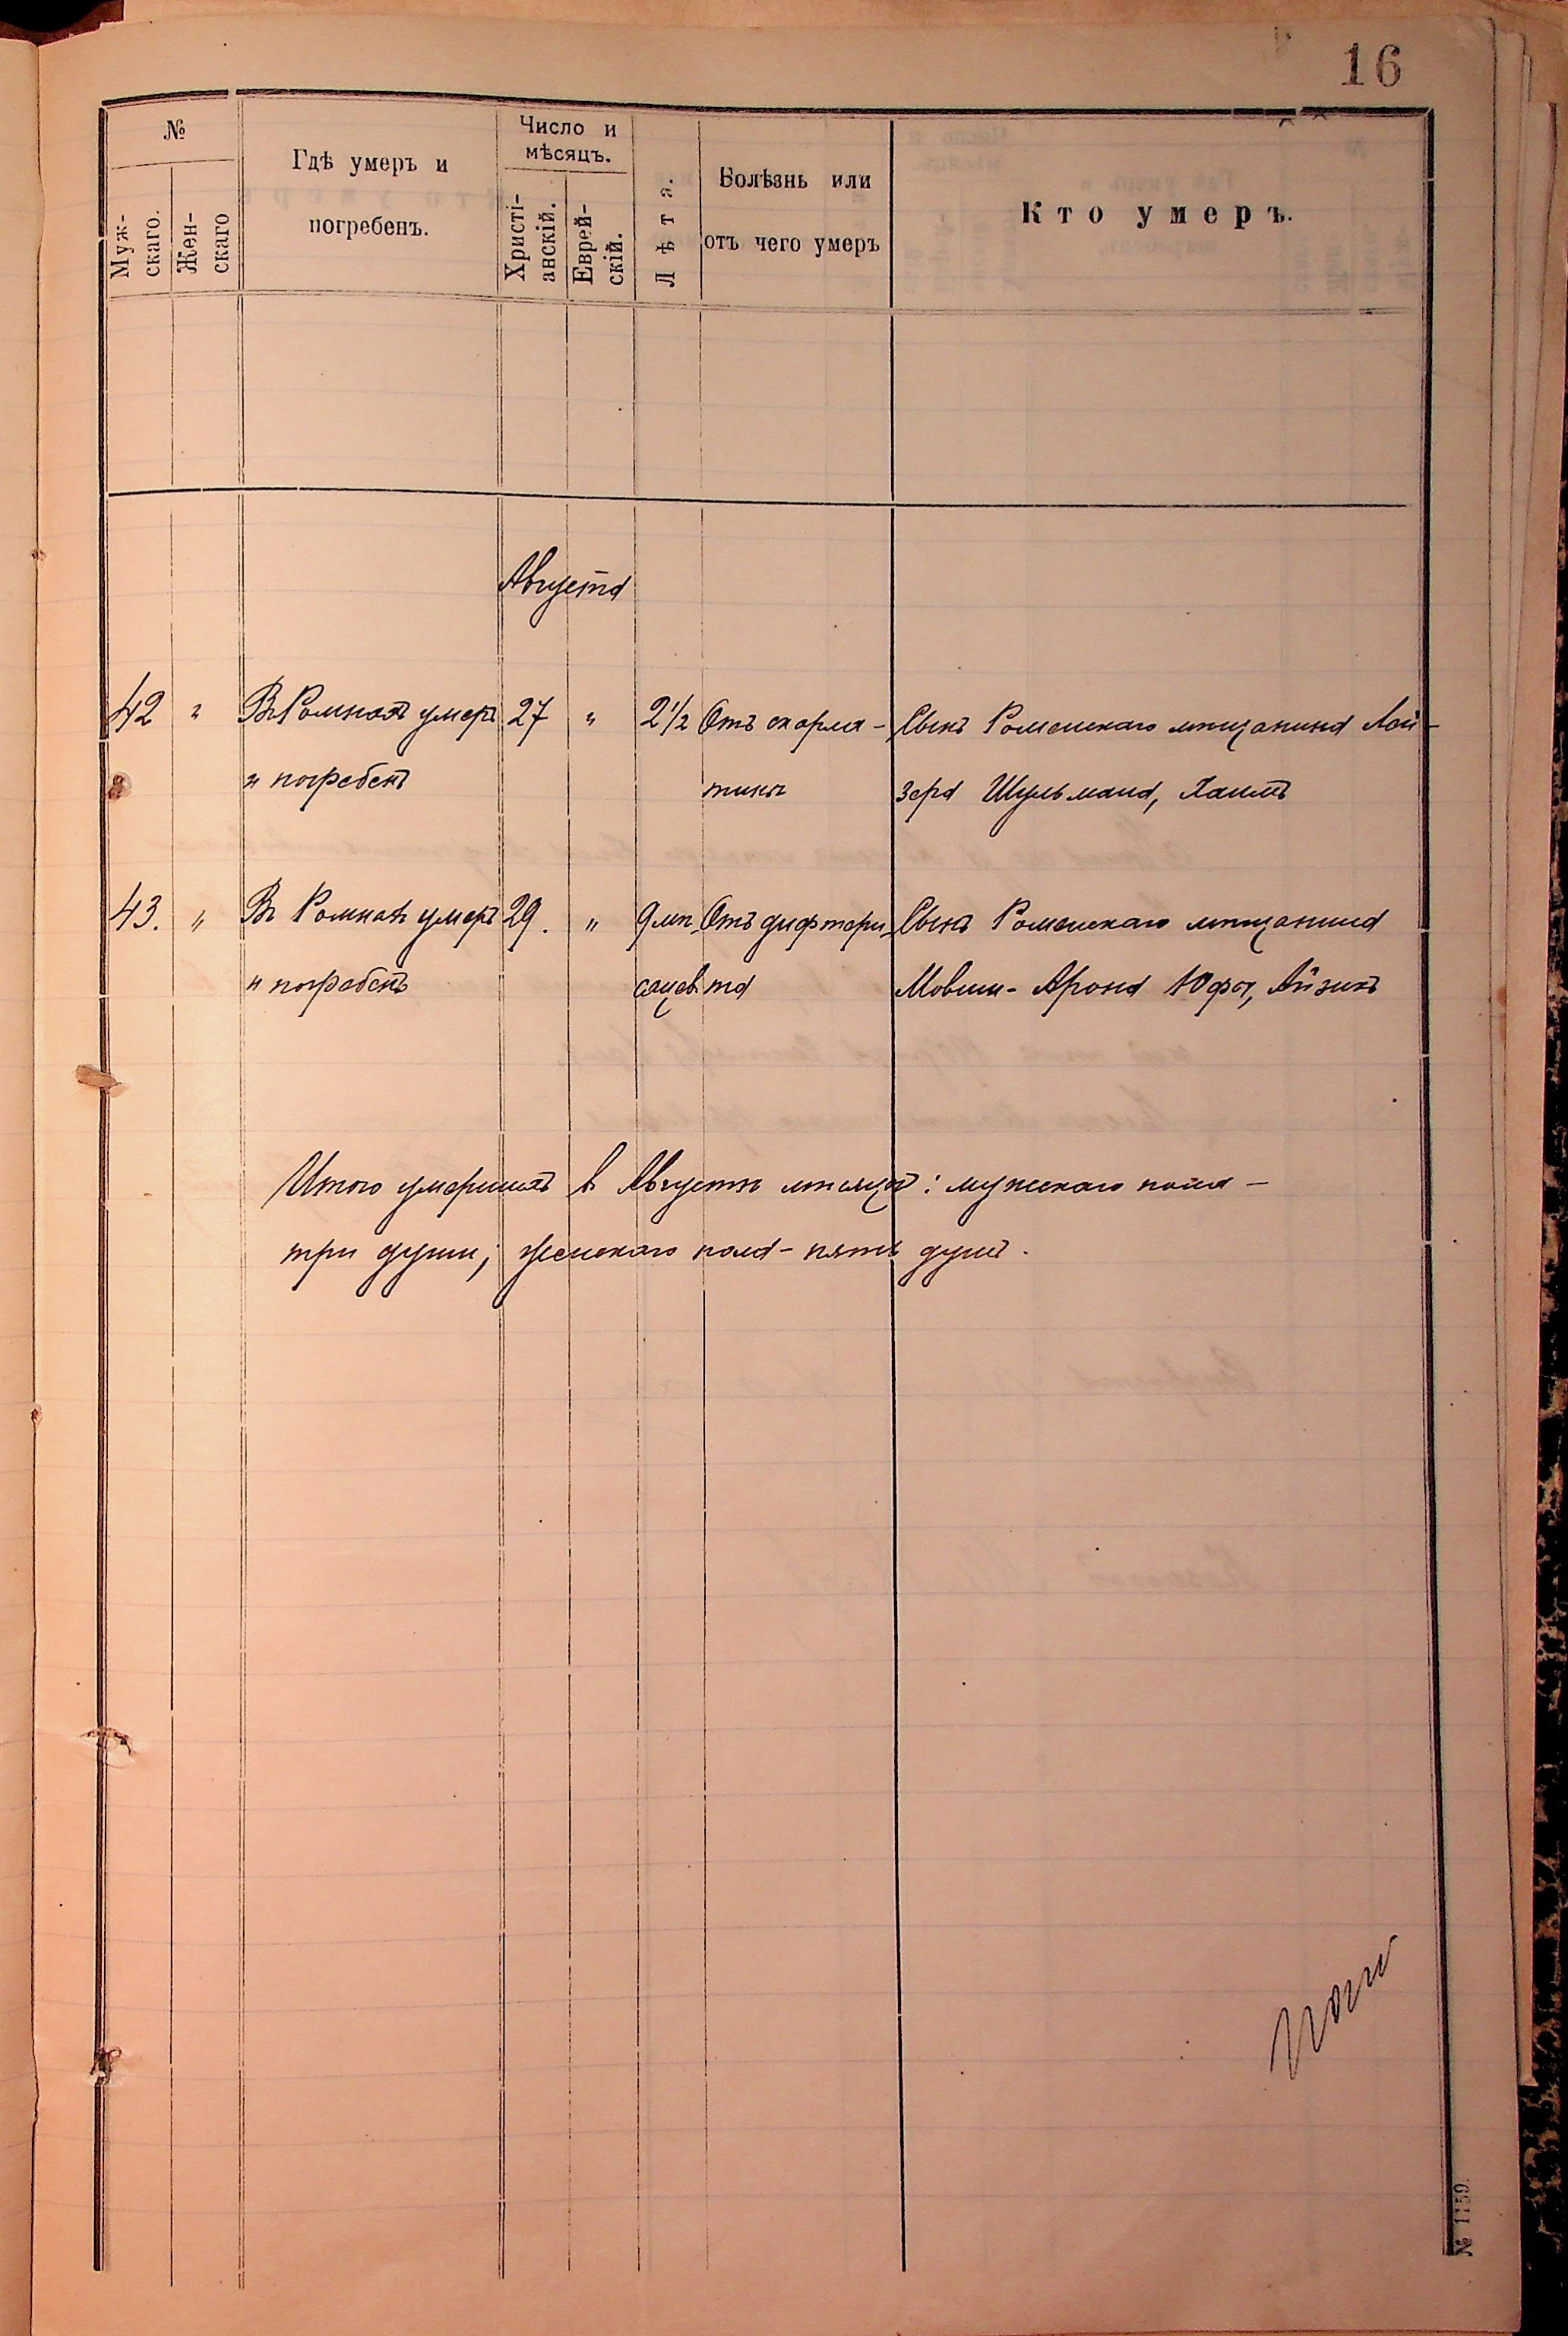 16
№
Муж-
скаго.
Жен-
скаго
Гдѣ умеръ и
погребенъ.
Число и
мѣсяцъ.
Христі-
анскій.
Еврей-
скій.
Лѣта.
Болѣзнь или
отъ чего умеръ
Кто умеръ.
Августа
42 " Въ Ромнахъ умеръ 27 " 2½ Отъ скарла- Сынъ Роменскаго мѣщанина Лей-
и погребенъ тины зера Шульмана, Хаимъ
43. " Въ Ромнахъ умеръ 29. " 9 мѣ- Отъ дифтери- Сынъ Роменскаго мѣщанина
и погребенъ сяцев та Мовши-Арона Юфы, Айзикъ
Итого умершихъ в Августѣ мѣсяцѣ: мужескаго пола -
три души; женскаго пола - пять душъ.
№ 1159.